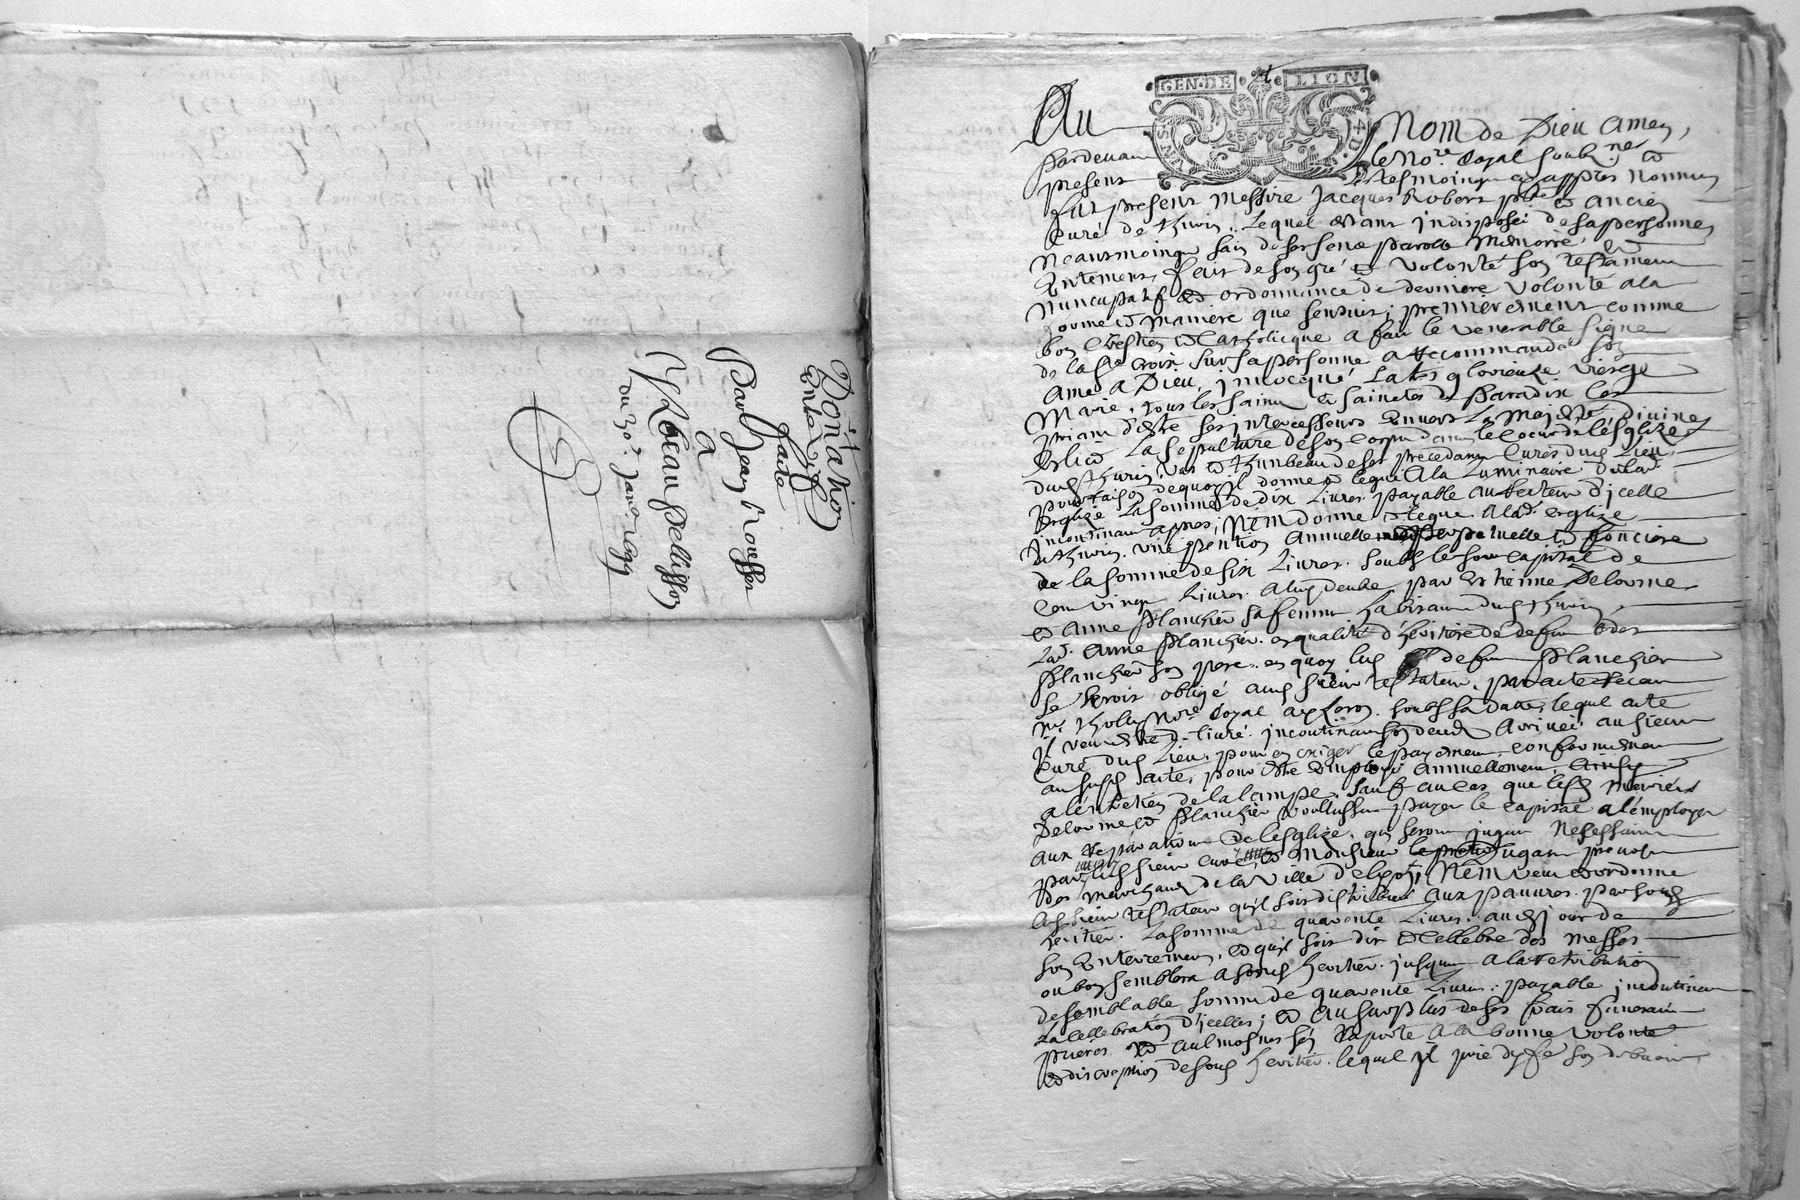 Donation
entre vifs
faite
Par Jean Rousset
A
Ysabeau Pelisson
du 30e Janv.
GEN·DE LION
Au Nom de Dieu Amen,
Pardevant le No.re Royal soubz.ne &
present tesmoings cy appres nommes
fut present Messire Jacques Robert p.bre & ancien
Curé de thurin, Lequel estant jndisposé de sa personne
Neantmoings sain de ses sens parolle memoire &
Entement, fait de son gré & volonté son testament
Nuncupatif & ordonnance de derniere volonté a la
forme & maniere que sensuit; premierement comme
bon Crestien & Catholicque a fait le venerable signe
de la s.te croix sur sa personne a recommandé son
Ame a Dieu, jnvocqué La tres glorieuse vierge
Marie, tous les saints & saintes de Paradix les
priant d'estre ses jntercesseurs Envers La Majesté Divine
Eslit La sepulture de son corps dans le coeur de l'esglize
dud. thurin, vas & thumbeau de ses precedants Curés dud. Lieu,
pour raison dequoy jl donne & legue A la Luminaire de lad.
Esglize La somme de dix Livres payable au recteur d'jcelle
jncontinant appres; jtem donne & legue a lad. esglize
de thurin, une pention annuelle perpetuelle & fonciere
de la somme de six Livres soubs le sort capital de
Cent vingt Livres a luy deube par Estienne Delorme
& Anne Planchier sa femme habitants dud. thurin,
Lad. Anne Planchier en qualité d'heritiere de defunt
Planchier son pere, en quoy led. defunt Planchier
se seroit obligé aud. sieur testateur, par acte receu
M.e No.re Royal soubs sa datte, lequel acte
jl veut estre delivré jncontinant son deces arrivé, au sieur
Curé dud. Lieu, pour en exiger le payement conformement
au susd. acte, pour estre employé annuellement
a l'entretien de la lampe, sauf au cas que lesd. mariés
Delorme & Planchier voulussent payer le capital a l'employer
aux reparations de l'esglize, qui seront jugees Nesessaires
par led. sieur curé, & Monsieur Dugas prevost
des marchands de la ville de Lyon; jtem veut & ordonne
led. sieur testateur qu'jl soit distribué aux pauvres par sond.
heritier La somme de quarente Livres au jour de
son Enterrement, & qu'jl soit dit & cellebré des messes
ou bon semblera a sond. heritier, jusques a la retribution
de semblable somme de quarente Livres, payable jncontinant
La cellebration d'jcelles; & au surplus de ses frais funeraires
prieres & aulmosnes s'en Raporte a la bonne volonté
& discreption de sond. heritier lequel jl prie d'y fe son debvoir